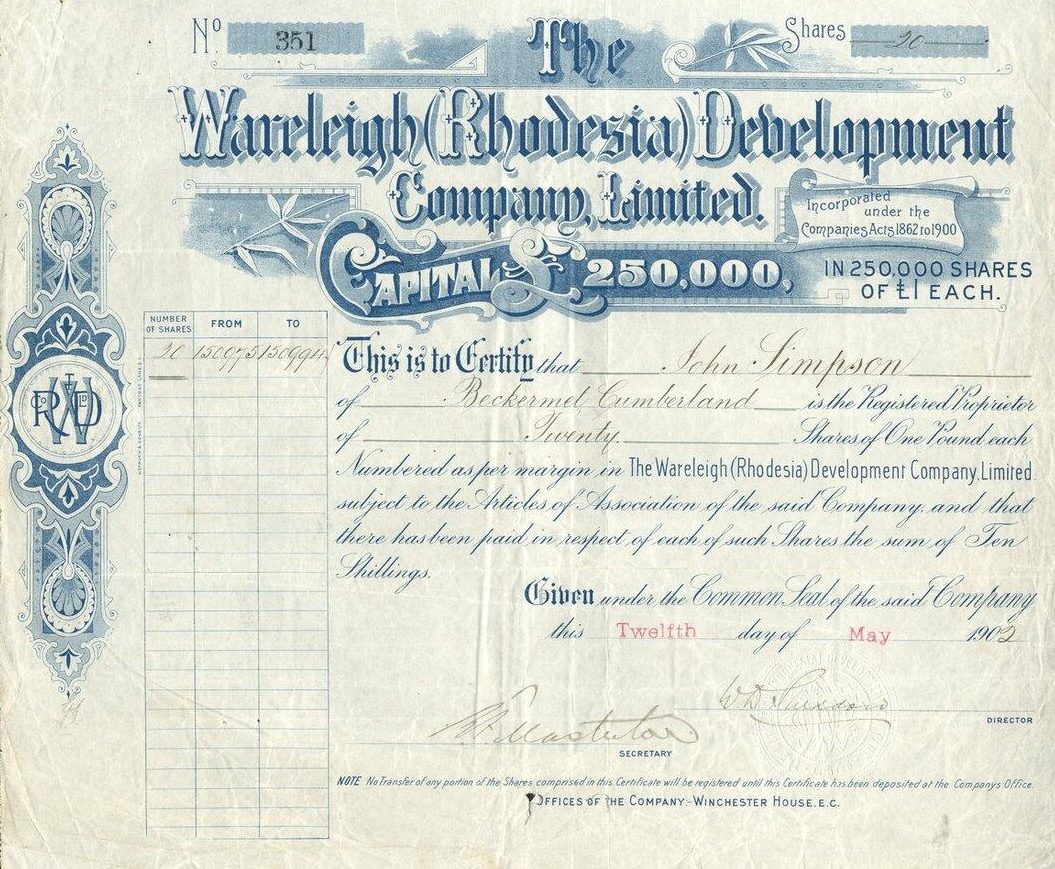 No. 351
Shares 20
The
Wareleigh (Rhodesia) Development
Company, Limited.
Incorporated
under the
Companies Acts 1862 to 1900
CAPITAL £250,000,
IN 250,000 SHARES
OF £1 EACH.
NUMBER OF SHARES FROM TO
20 150975 150994
This is to Certify that John Simpson
of Beckermet Cumberland is the Registered Proprietor
of Twenty Shares of One Pound each
Numbered as per margin in The Wareleigh (Rhodesia) Development Company, Limited
subject to the Articles of Association of the said Company, and that
there has been paid in respect of each of such Shares the sum of Ten
Shillings.
Given under the Common Seal of the said Company
this Twelfth day of May 1902
DIRECTOR
SECRETARY
NOTE No Transfer of any portion of the Shares comprised in this Certificate will be registered until this Certificate has been deposited at the Companys Office.
OFFICES OF THE COMPANY-WINCHESTER HOUSE. E.C.